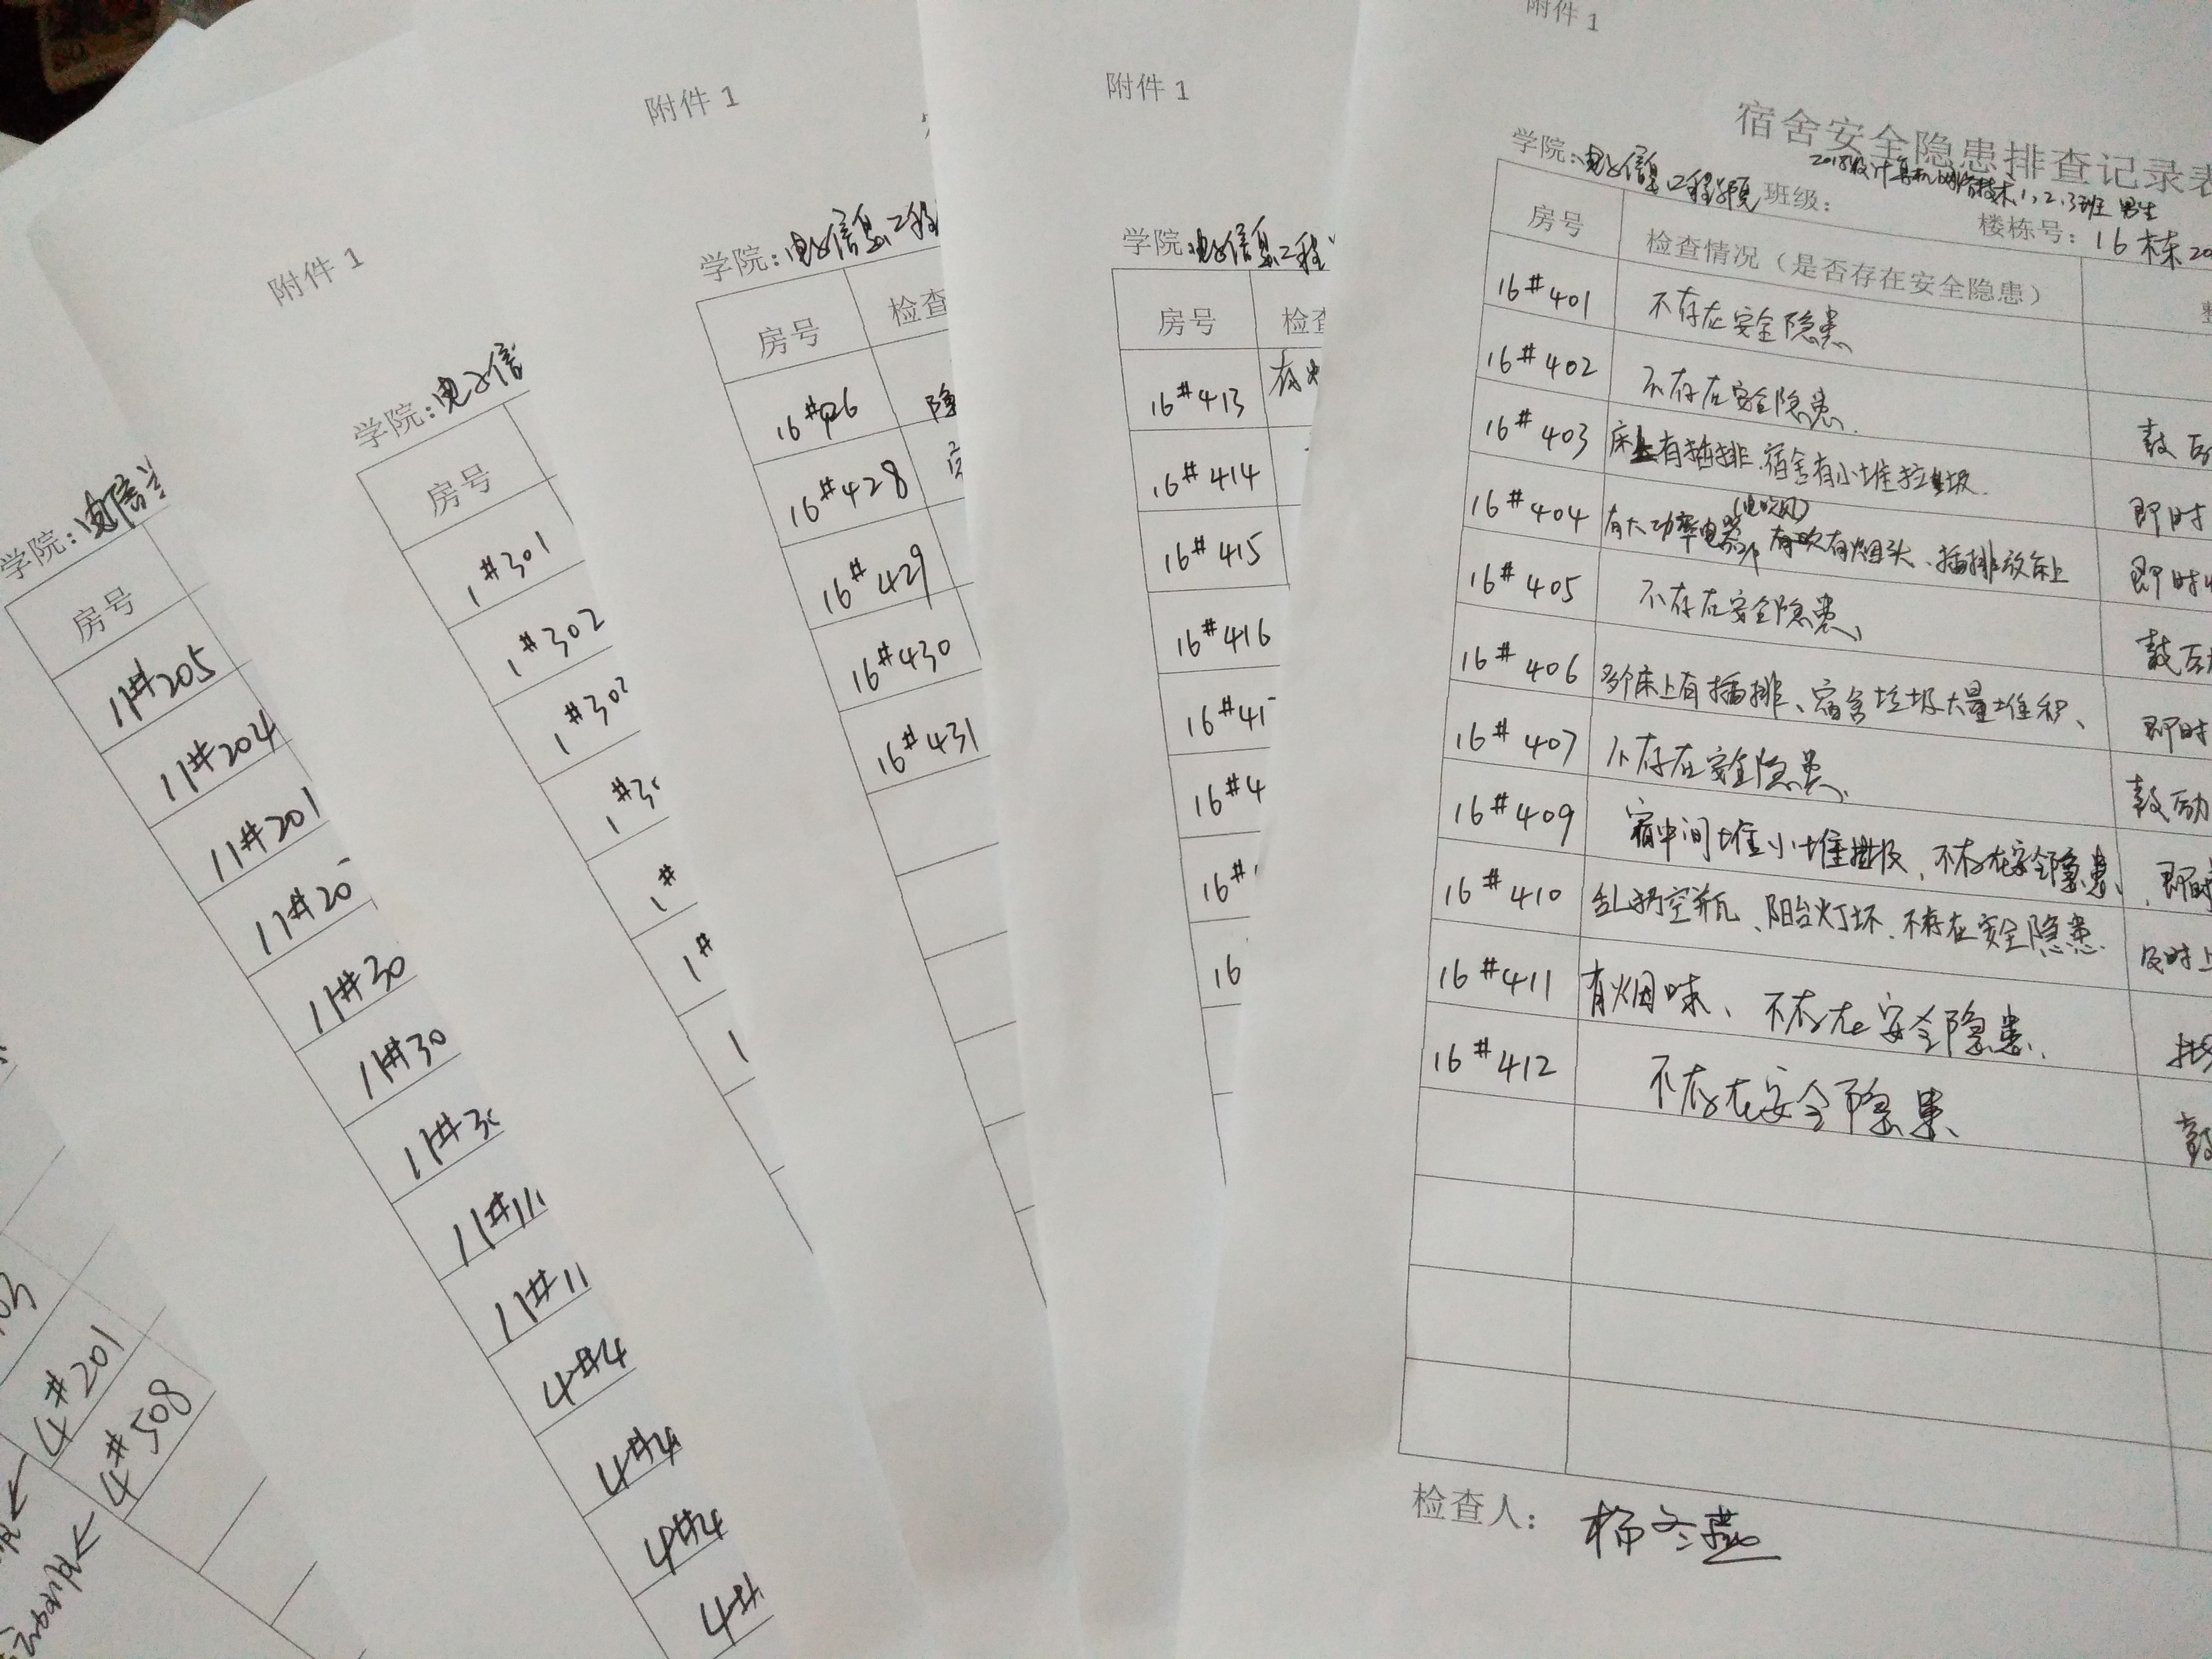 附件 1
宿舍安全隐患排查记录表
学院：电子信息工程学院 班级：2018级计算机网络技术1，2，3班 男生
楼栋号：16栋
房号 检查情况（是否存在安全隐患）
16#401 不存在安全隐患
16#402 不存在安全隐患
16#403 床上有插排、宿舍有小堆垃圾 即时
16#404 有大功率电器(电吹风) 有烟头、插排放床上 即时
16#405 不存在安全隐患 鼓励
16#406 多个床上有插排、宿舍垃圾大量堆积、 即时
16#407 不存在安全隐患 鼓励
16#409 宿中间堆小堆垃圾、不存在安全隐患 即时
16#410 乱扔空瓶、阳台灯坏、不存在安全隐患 及时上
16#411 有烟味、不存在安全隐患
16#412 不存在安全隐患 鼓
检查人： 杨冬燕
附件 1
学院：电子信息工程
房号 检查
16#413
16#414
16#415
16#416
16#41
16#4
16#
16
附件 1
学院：电子信息工程
房号 检查
16#426 隐
16#428
16#429
16#430
16#431
附件 1
学院：电子信
房号
1#301
1#302
1#30
1#30
1#
1#
1
学院：电信
房号
11#205
11#204
11#201
11#20
11#30
11#30
11#30
11#11
11#11
4#4
4#4
4#4
4#
03
4#201
4#508